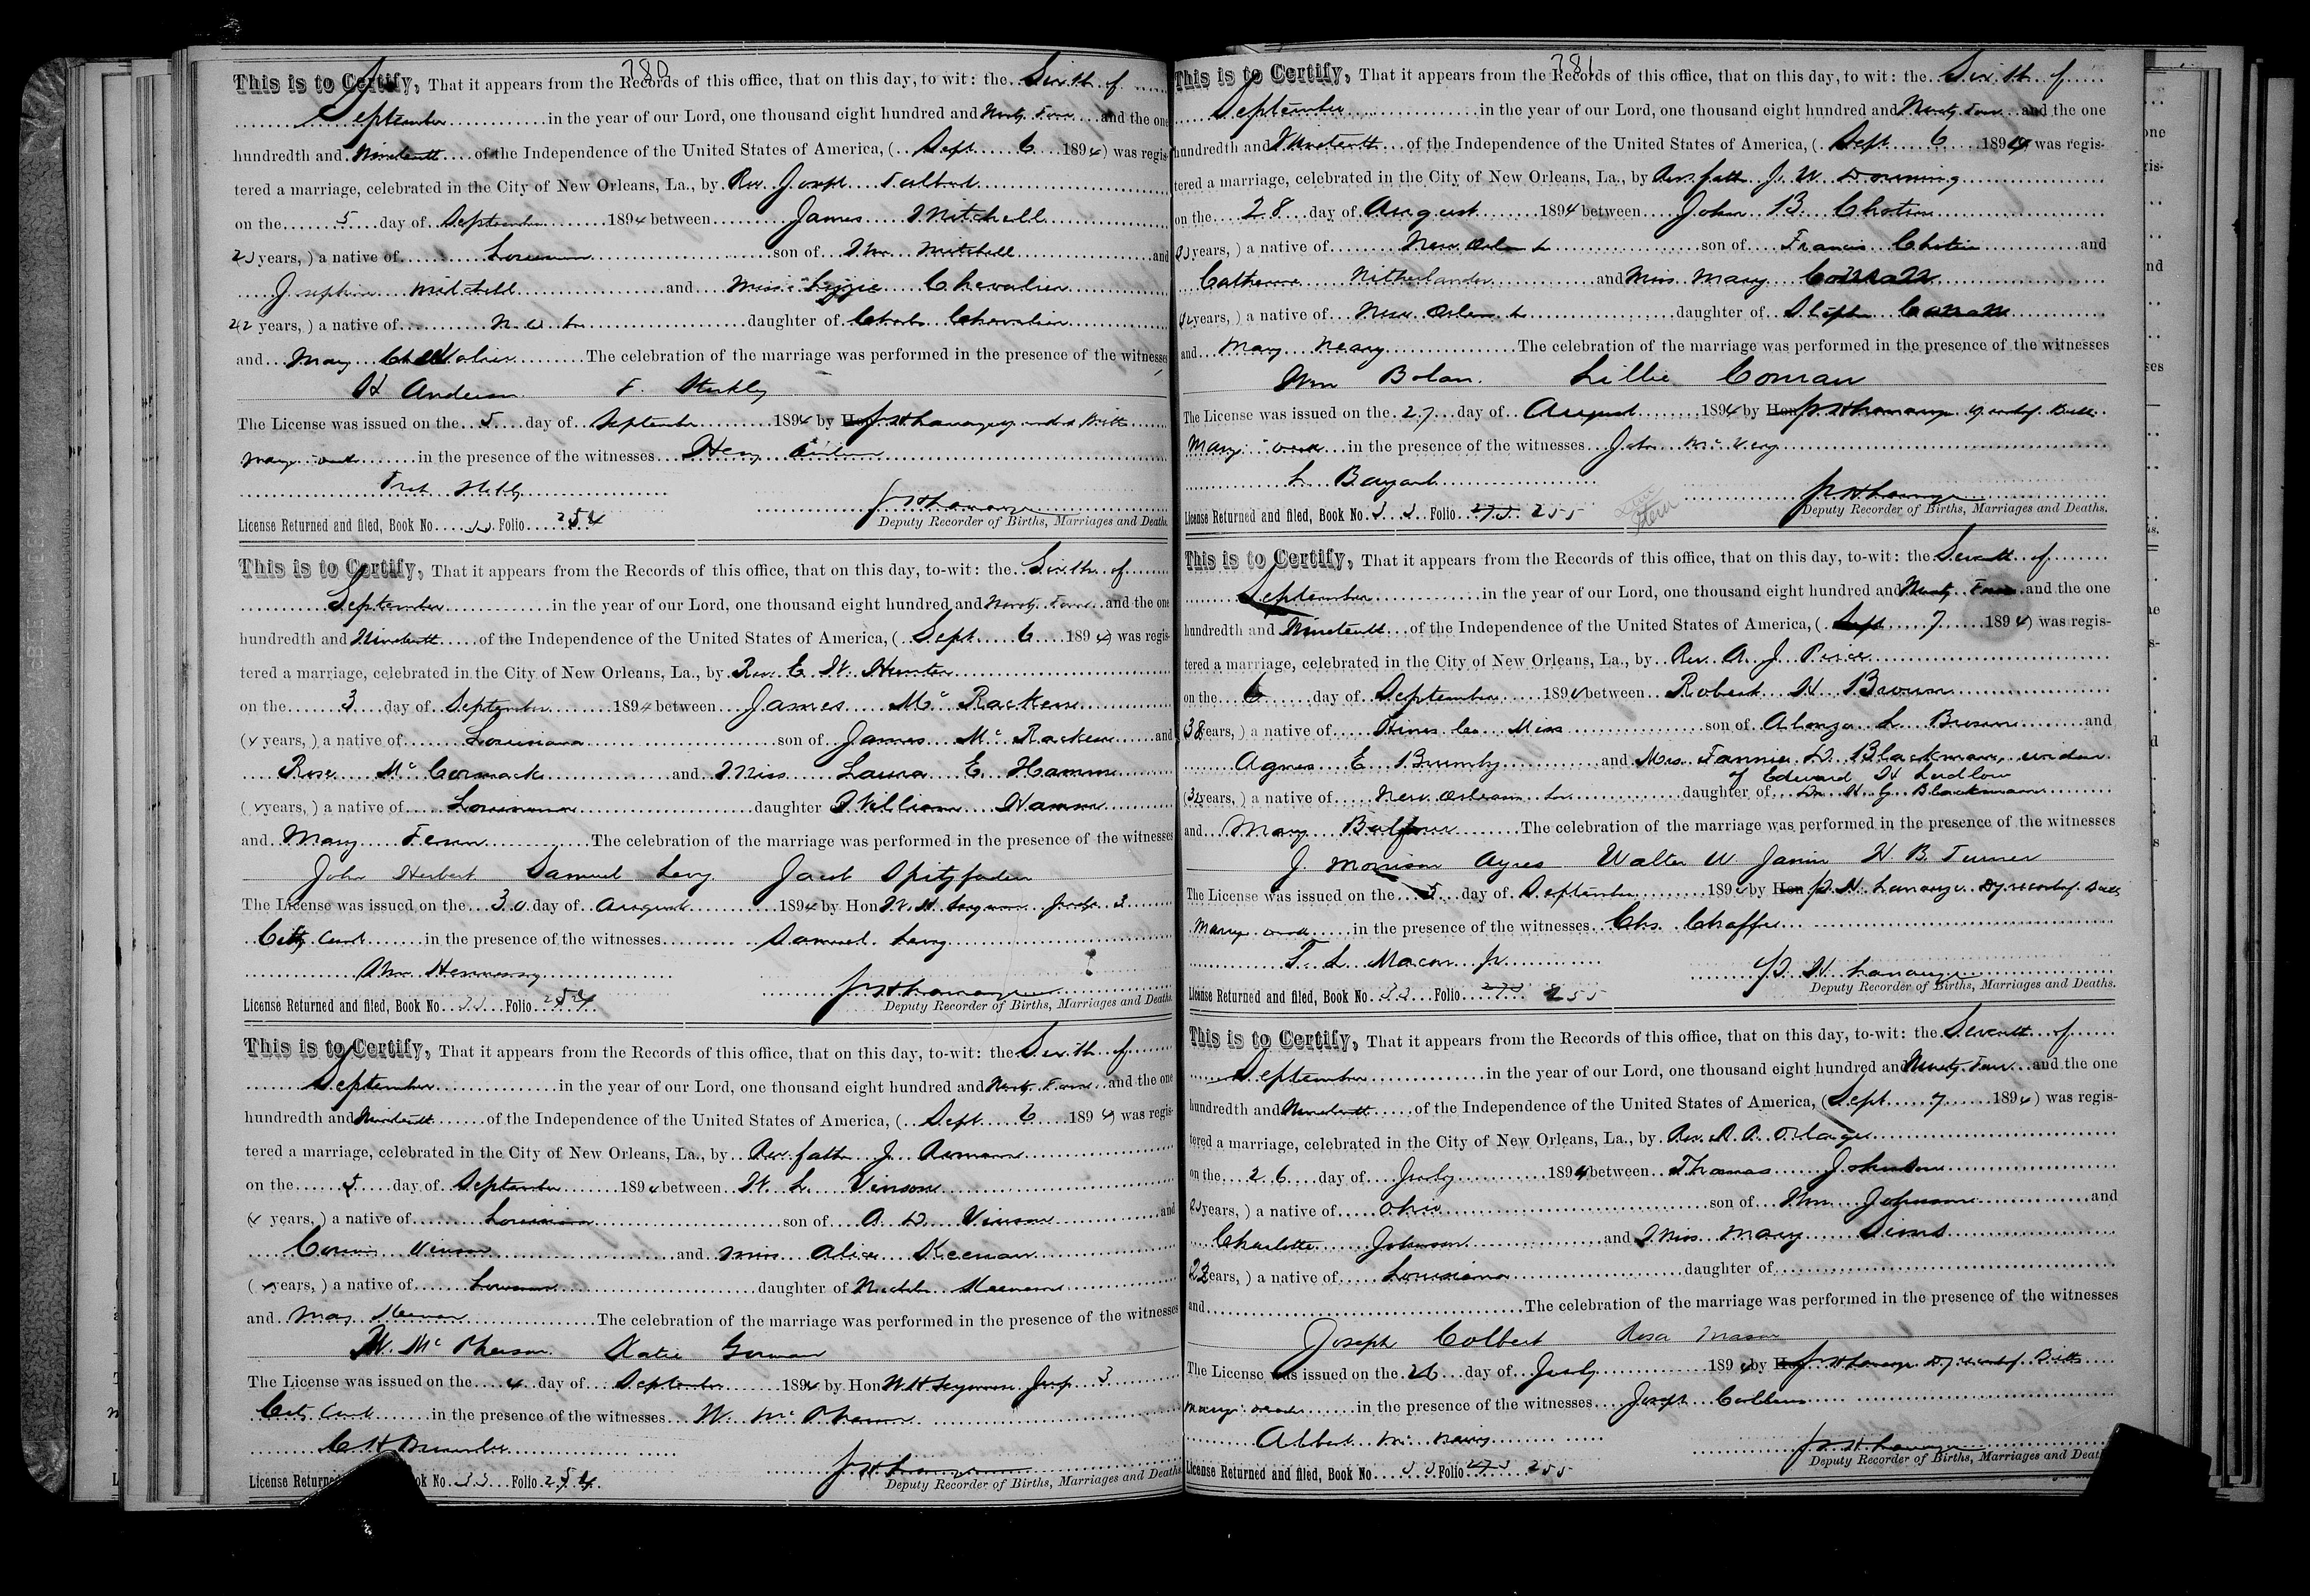 380
This is to Certify, That it appears from the Records of this office, that on this day, to wit: the Sixth of
September in the year of our Lord, one thousand eight hundred and Ninety Four and the one
hundredth and Nineteenth of the Independence of the United States of America, ( Sept 6 1894) was regis-
tered a marriage, celebrated in the City of New Orleans, La., by Rev. Joseph
on the 5 day of September 1894 between James Mitchell
years, ) a native of Louisiana son of Wm Mitchell and
Josephine Mitchell and Miss Lizzie Chevalier
22 years, ) a native of N. O. La daughter of Charles Chevalier
and Mary Chevalier The celebration of the marriage was performed in the presence of the witnesses
H Anderson F.
The License was issued on the 5 day of September 1894 by Hon
in the presence of the witnesses Henry

Deputy Recorder of Births, Marriages and Deaths.
License Returned and filed, Book No. 33 Folio 254
This is to Certify, That it appears from the Records of this office, that on this day, to-wit: the Sixth of
September in the year of our Lord, one thousand eight hundred and Ninety Four and the one
hundredth and Nineteenth of the Independence of the United States of America, ( Sept 6 1894) was regis-
tered a marriage, celebrated in the City of New Orleans, La., by Rev. E. W. Hunter
on the 3 day of September 1894 between James Mc Racken
years, ) a native of Louisiana son of James Mc Racken and
Rose Mc Cormack and Miss Laura E. Hamm
years, ) a native of Louisiana daughter William Hamm
and Mary The celebration of the marriage was performed in the presence of the witnesses
John Herbert Samuel Levy Jacob Spitzfaden
The License was issued on the 30 day of August 1894 by Hon W. H. Seymour Judge 3
City Court in the presence of the witnesses Samuel Levy
Wm Hennessy
Deputy Recorder of Births, Marriages and Deaths.
License Returned and filed, Book No. 33 Folio 254
This is to Certify, That it appears from the Records of this office, that on this day, to-wit: the Sixth of
September in the year of our Lord, one thousand eight hundred and Ninety Four and the one
hundredth and Nineteenth of the Independence of the United States of America, ( Sept 6 1894) was regis-
tered a marriage, celebrated in the City of New Orleans, La., by Rev. father J.
on the 5 day of September 1894 between W. L. Vinson
years, ) a native of Louisiana son of A. D. Vinson and
Vinson and Miss Alice Keenan
years, ) a native of Louisiana daughter of Keenan
and Mary Keenan The celebration of the marriage was performed in the presence of the witnesses
W. Mc Pherson Katie Gorman
The License was issued on the 4 day of September 1894 by Hon W H Seymour Judge 3
City Court in the presence of the witnesses W. Mc Pherson
C H
Deputy Recorder of Births, Marriages and Deaths.
License Returned ok No. 33 Folio 254
381
This is to Certify, That it appears from the Records of this office, that on this day, to wit: the Sixth of
September in the year of our Lord, one thousand eight hundred and Ninety Four and the one
hundredth and Nineteenth of the Independence of the United States of America, ( Sept 6 1894) was regis-
tered a marriage, celebrated in the City of New Orleans, La., by Rev. father J. W. Downing
on the 28 day of August 1894 between John B.
years, ) a native of New Orleans La son of Francis and
Catherine Netherlander and Miss Mary
years, ) a native of New Orleans La daughter of Stephen
and Mary Neary The celebration of the marriage was performed in the presence of the witnesses
Wm Bolan. Lillie Conran
The License was issued on the 27 day of August 1894 by Hon
in the presence of the witnesses John
L. Bayard
Deputy Recorder of Births, Marriages and Deaths.
License Returned and filed, Book No. 33 Folio 255
This is to Certify, That it appears from the Records of this office, that on this day, to-wit: the Seventh of
September in the year of our Lord, one thousand eight hundred and Ninety Four and the one
hundredth and Nineteenth of the Independence of the United States of America, ( Sept 7 1894) was regis-
tered a marriage, celebrated in the City of New Orleans, La., by Rev. A. J.
on the 6 day of September 1894 between Robert H Brown
(38 years, ) a native of Hines Co Miss son of Alonzo L. Brown and
Agnes E. Brumby and Mrs. Fannie D. Blackman, widow
of Edward H Ludlow
years, ) a native of New Orleans La daughter of Dr. W. G. Blackman
and Mary Balfour The celebration of the marriage was performed in the presence of the witnesses
J. Morrison Ayres Walter W. Janin H. B. Turner
The License was issued on the 5 day of September 1894 by Hon
in the presence of the witnesses Chs. Chaffe
T. L. Macon Jr.
Deputy Recorder of Births, Marriages and Deaths.
License Returned and filed, Book No. 33 Folio 255
This is to Certify, That it appears from the Records of this office, that on this day, to-wit: the Seventh of
September in the year of our Lord, one thousand eight hundred and Ninety Four and the one
hundredth and Nineteenth of the Independence of the United States of America, ( Sept 7 1894) was regis-
tered a marriage, celebrated in the City of New Orleans, La., by Rev.
on the 26 day of July 1894 between Thomas Johnson
years, ) a native of Ohio son of Wm Johnson and
Charlotte Johnson and Miss Mary Sims
years, ) a native of Louisiana daughter of
and The celebration of the marriage was performed in the presence of the witnesses
Joseph Colbert Rosa Mason
The License was issued on the 26 day of July 1894 by
in the presence of the witnesses Joseph
Albert
Deputy Recorder of Births, Marriages and Deaths
License Returned and filed, Book No. 33 Folio 255